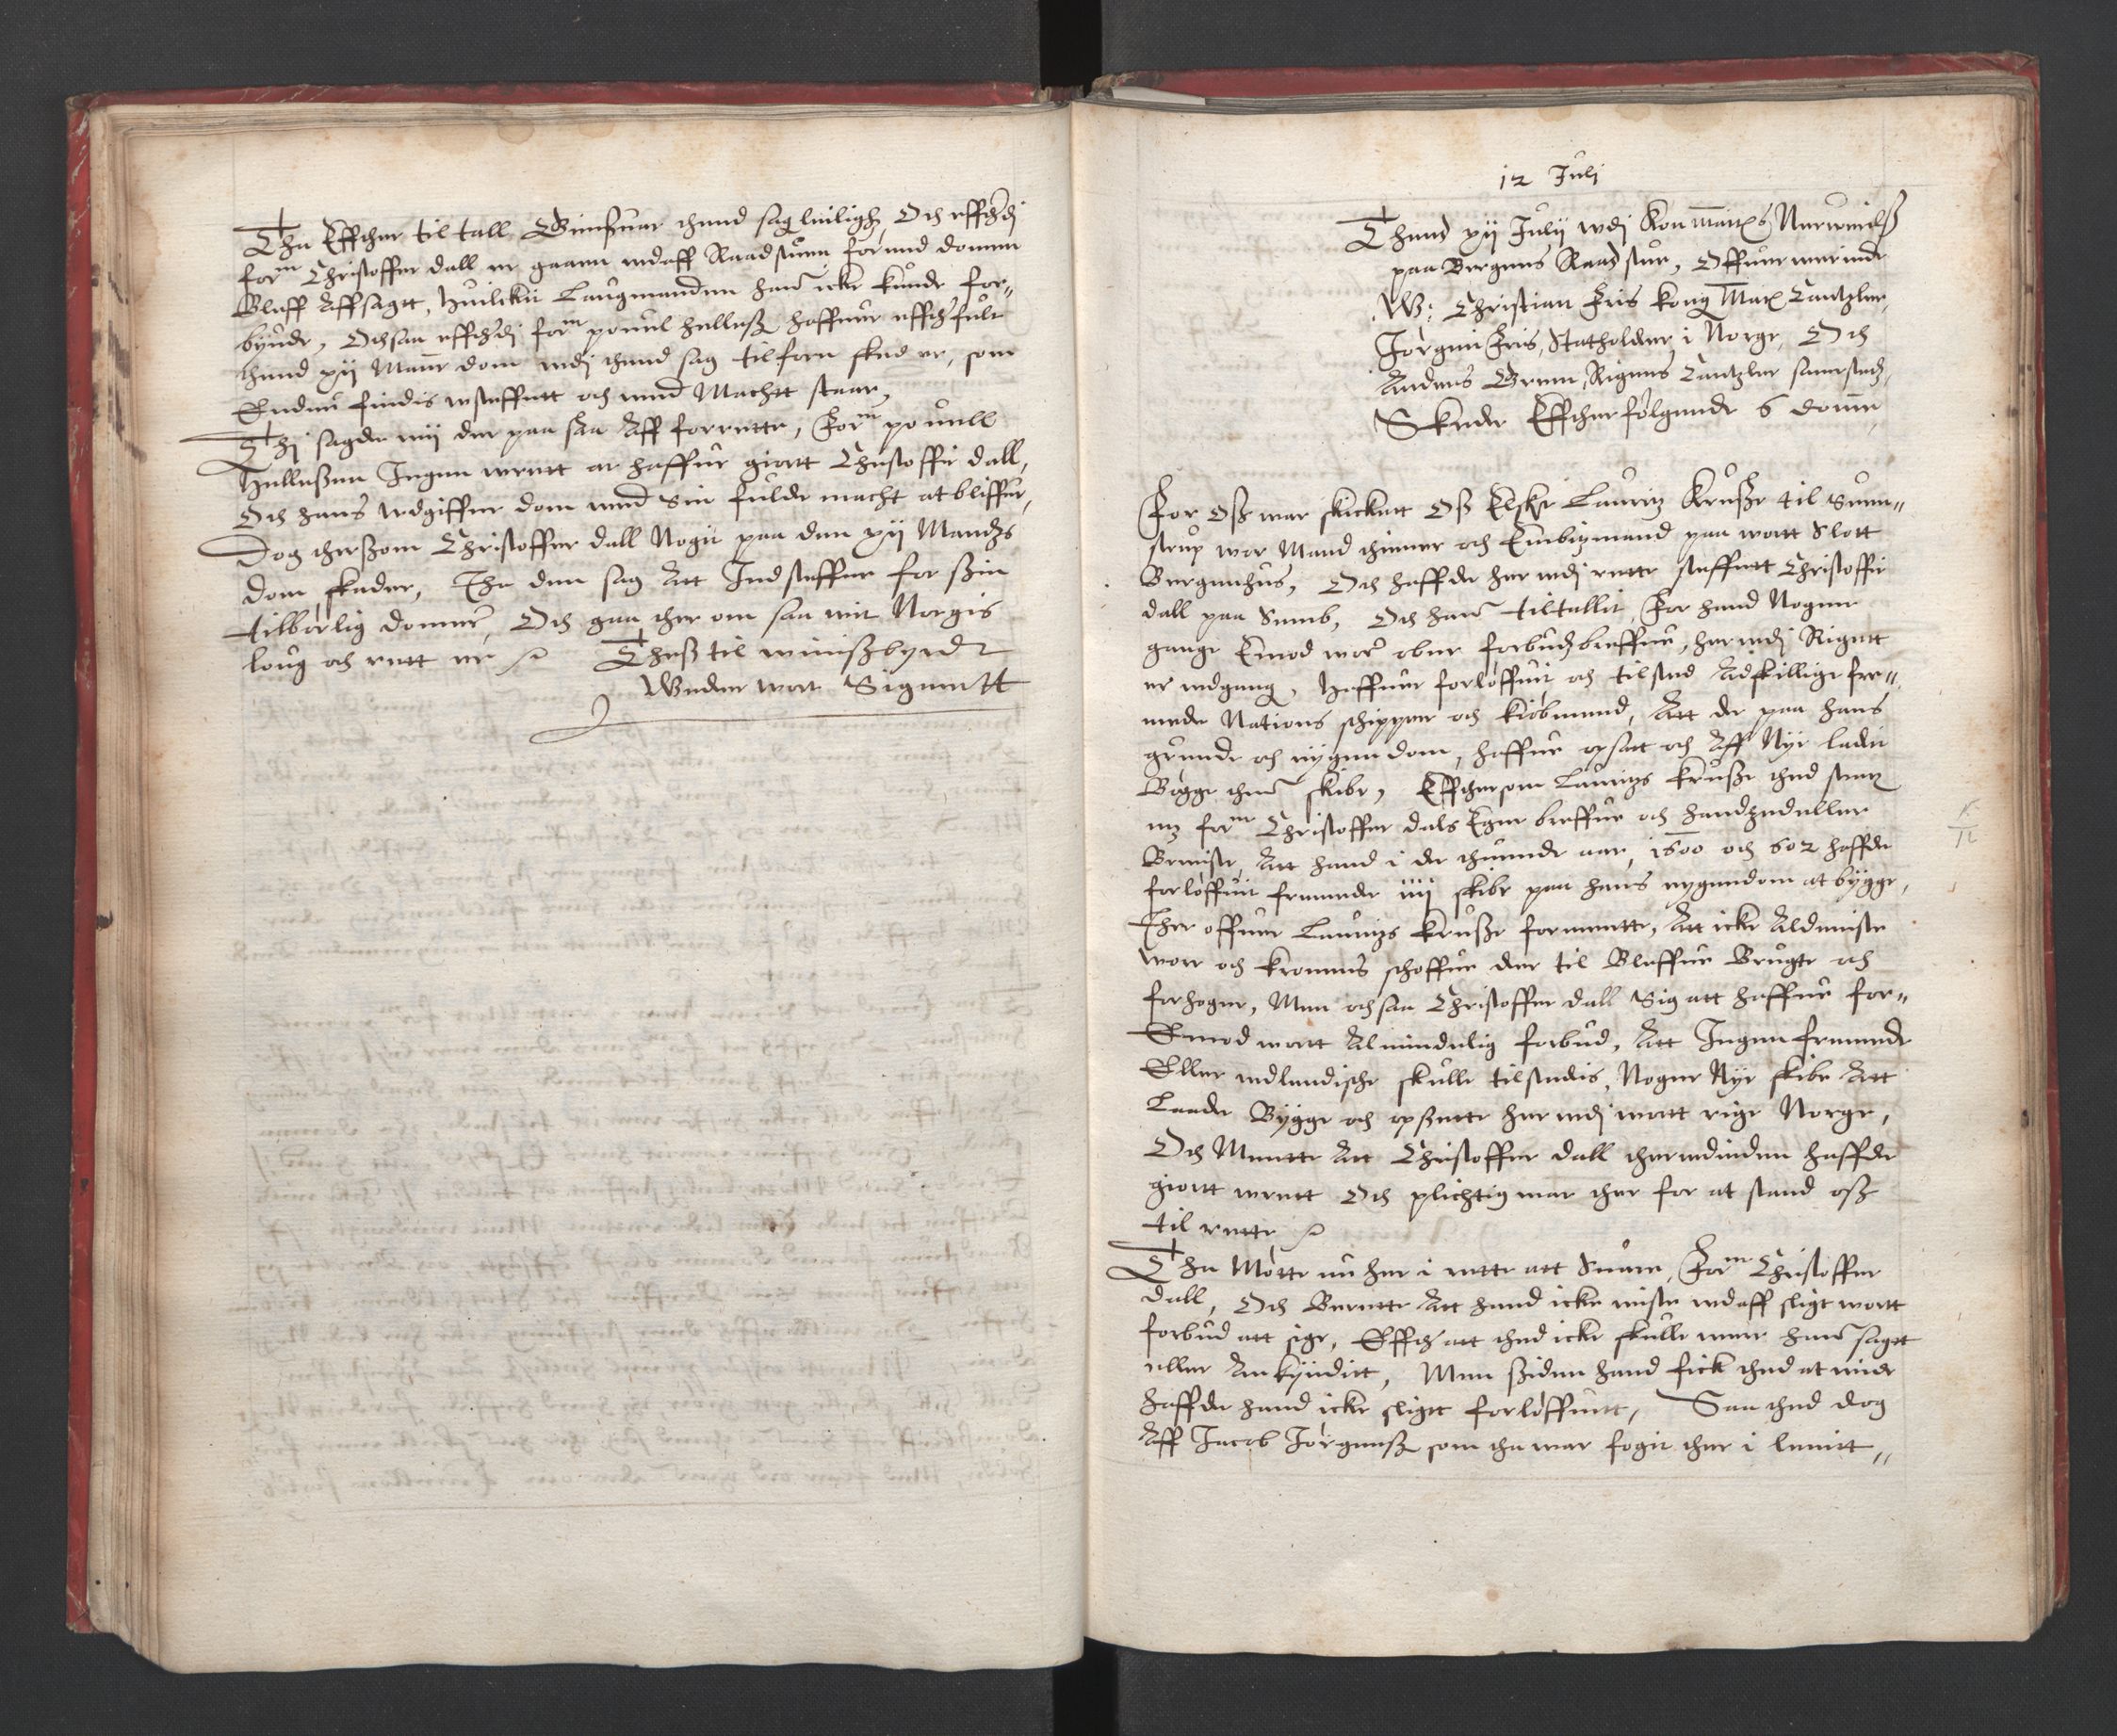 Tha Effther til tall Giensuar thend sag leiligh, Och effthdj
forne Christoffer dall er gaaen wdaff Raadstuen förend domen
Bleff Affsagtt, huilckit Laugmanden hanem icke kunde for-
byude, Ochsaa effthdj forne pouel hellesß haffuer effthfült
thend xij Manne dom wdj thend sag tilforn sked er, som
Endnu findis wsteffnett och wed Machtt staar,
Thj sagde wij der paa saa Aff forrette, Forne pouell
Hellesßen Ingen wrett at haffue giortt Christoffer dall,
Och hans wdgiffne dom wed sin fulde macht at bliffue,
Dog thersßom Christoffer dall Nogit paa den xij Mandzs
dom skader, Tha den sag Att Indsteffne for sßin
tilbörlig dommer, Och gaa ther om saa uit Norgis
loug och rett er Theß til winisßbyrd
Wnder wort Signett
12 Julj
Thend xij Julij wdj Kon Maittz Nerwerelß
paa Bergens Raadstue, Offuerwerinde
W: Christian Friis kong Maitz Cantzler
Jörgen Friis, Statholder i Norge, Och
Anders Green, Rigens Cantzler sammesteds,
Skeede Efftherfölgende 6 domme
For Osß war skickett Oß Elske Lauritz Kruße til Suen-
strup wor Mand thiener och Embitzmand paa wortt Slott
Bergenhus, Och haffde her wdj rette steffnett Christoffer
dall paa Semb, Och hanem tiltallit, For hand Nogne
gange Emod wore obne forbudz breffue, her wdj Rigett
er wdgang, Haffuer forlöffuit och tilsted Adskillige fre-
mede Nations schipper och kiöbmend, Att de paa hans
grunde och eygendom, haffue opsatt och Aff Nye ladit
Bögge thenem skibe, Effthersom Lauritzs Kruße thed
forne Christoffer dals Egne breffue och handzedeller
Beuiste, Att hand i de thuende aar, 1600 och 602 haffde
forlöffuit fremmede iiij skibe paa hans eygendom at bygge,
Ther offuer Lauritzs Kruße formeentte, Att icke Aldeniste
wore och kronens schoffue der til Bleffue Brugte och
forhogne, Men ochsaa Christoffer dall Sig att haffue for-
Emod wortt Almindelig forbud, Att Ingen fremmede
Eller wdlendische skulle tilstedis, Nogne Nye skibe Att
Laade Bygge och opsßette her wdj wortt rige Norge,
Och Meentte Att Christoffer dall ther wdinden haffde
giortt wrett Och plichtig war ther for at stand osß
til rette
Tha Mötte nu her i rette att Suare, Forne Christoffer
dall, Och Berette Att hand icke uiste wdaff sligt wortt
forbud att sige, Effth att thed icke skulle were hanem sagtt
eller Ankyndit, Men sßiden hand fick thed at uide
haffde hand icke sligtt forlöffuett, Saa thed dog
Aff Jacob Jörgensß som tha war fogit ther i leenitt,